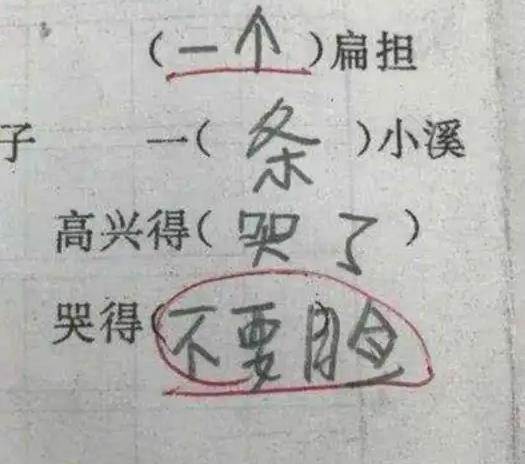 (一个)扁担
子 一(条)小溪
高兴得(哭了)
哭得(不要脸)